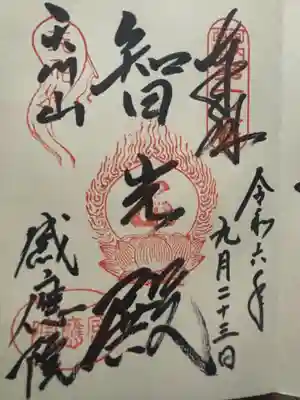 奉拝
令和六年
九月二十三日
智光殿
天川山
感應院